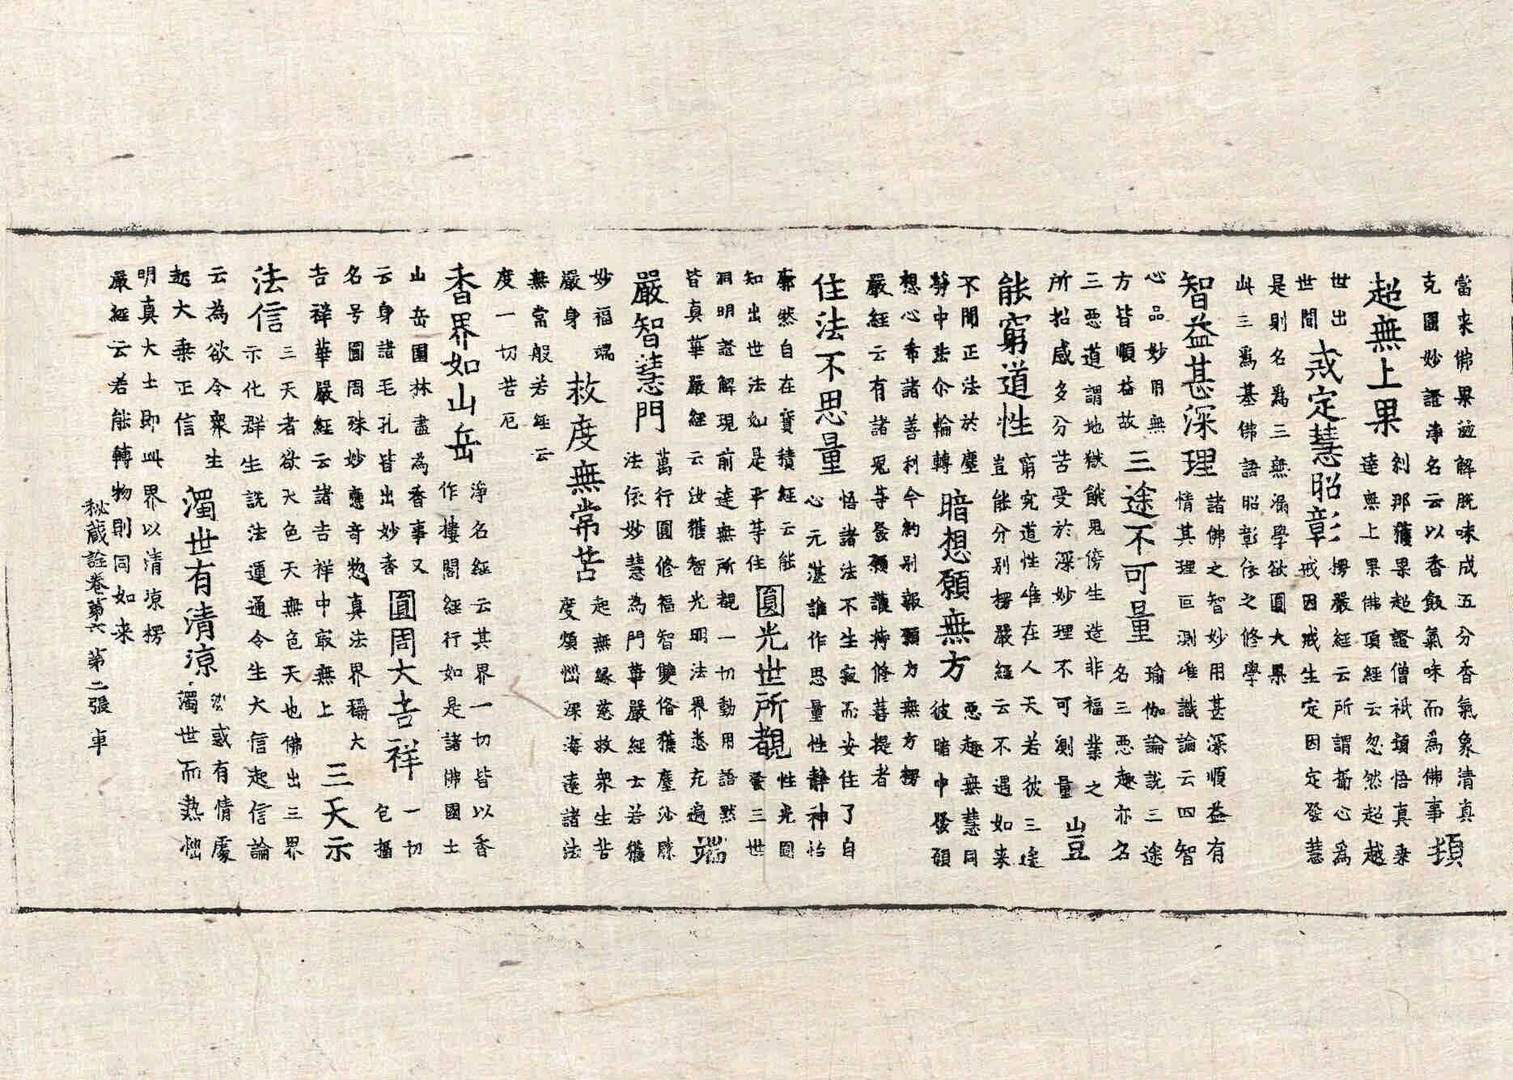 當来佛果證解脫味成五分香氣象清真
克圓妙證淨名云以香飯氣味而為佛事
頓
超無上果
刹那獲果超證僧祇頓悟真乘
達無上果佛頂經云忽然超越
世出
世間
戒定慧昭彰
楞嚴經云所謂攝心為
戒因戒生定因定發慧
是則名為三無漏學欲圓大果
此三為基佛語昭彰依之修學
智益甚深理
諸佛之智妙用甚深順益有
情其理叵測唯識論云四智
心品妙用無
方皆順益故
三途不可量
瑜伽論説三途
名三惡趣亦名
三惡道謂地獄餓鬼傍生造非福業之
所招感多分苦受於深妙理不可測量
豈
能窮道性
窮究道性唯在人天若彼三途
豈能分別楞嚴經云不遇如来
不聞正法於塵
勞中法尒輪轉
暗想願無方
惡趣無慧同
彼暗中發願
想心希諸善利今約別報願方無方楞
嚴經云有諸鬼等發願護持修菩提者
住法不思量
悟諸法不生寂而安住了自
心元湛誰作思量性靜神怡
廓然自在寶積經云能
知出世法如是平等住
圓光世所覩
性光圓
鑒三世
洞明證解現前達無所覩一切動用語默
皆真華嚴經云汝獲智光明法界悉充遍
端
嚴智慧門
萬行圓修福智雙俻獲塵沙勝
法依妙慧為門華嚴經士若獲
妙福端
嚴身
救度無常苦
起無緣慈救衆生苦
度煩惱深海達諸法
無常般若經云
度一切苦厄
香界如山岳
淨名經云其界一切皆以香
作樓閣經行如是諸佛國土
山岳園林盡為香事又
云身諸毛孔皆出妙香
圓周大吉祥
一切
包攝
名号圓周殊妙應奇惣真法界稱大
吉祥華嚴經云諸吉祥中㝡無上
三天示
法信
三天者欲天色天無色天也佛出三界
示化群生説法運通令生大信起信論
云為欲令衆生
起大乗正信
濁世有清涼
惑有情處
濁世而熱惱
明真大士即此界以清涼楞
嚴經云若能轉物則同如来
秘藏詮卷第六 第二張 車